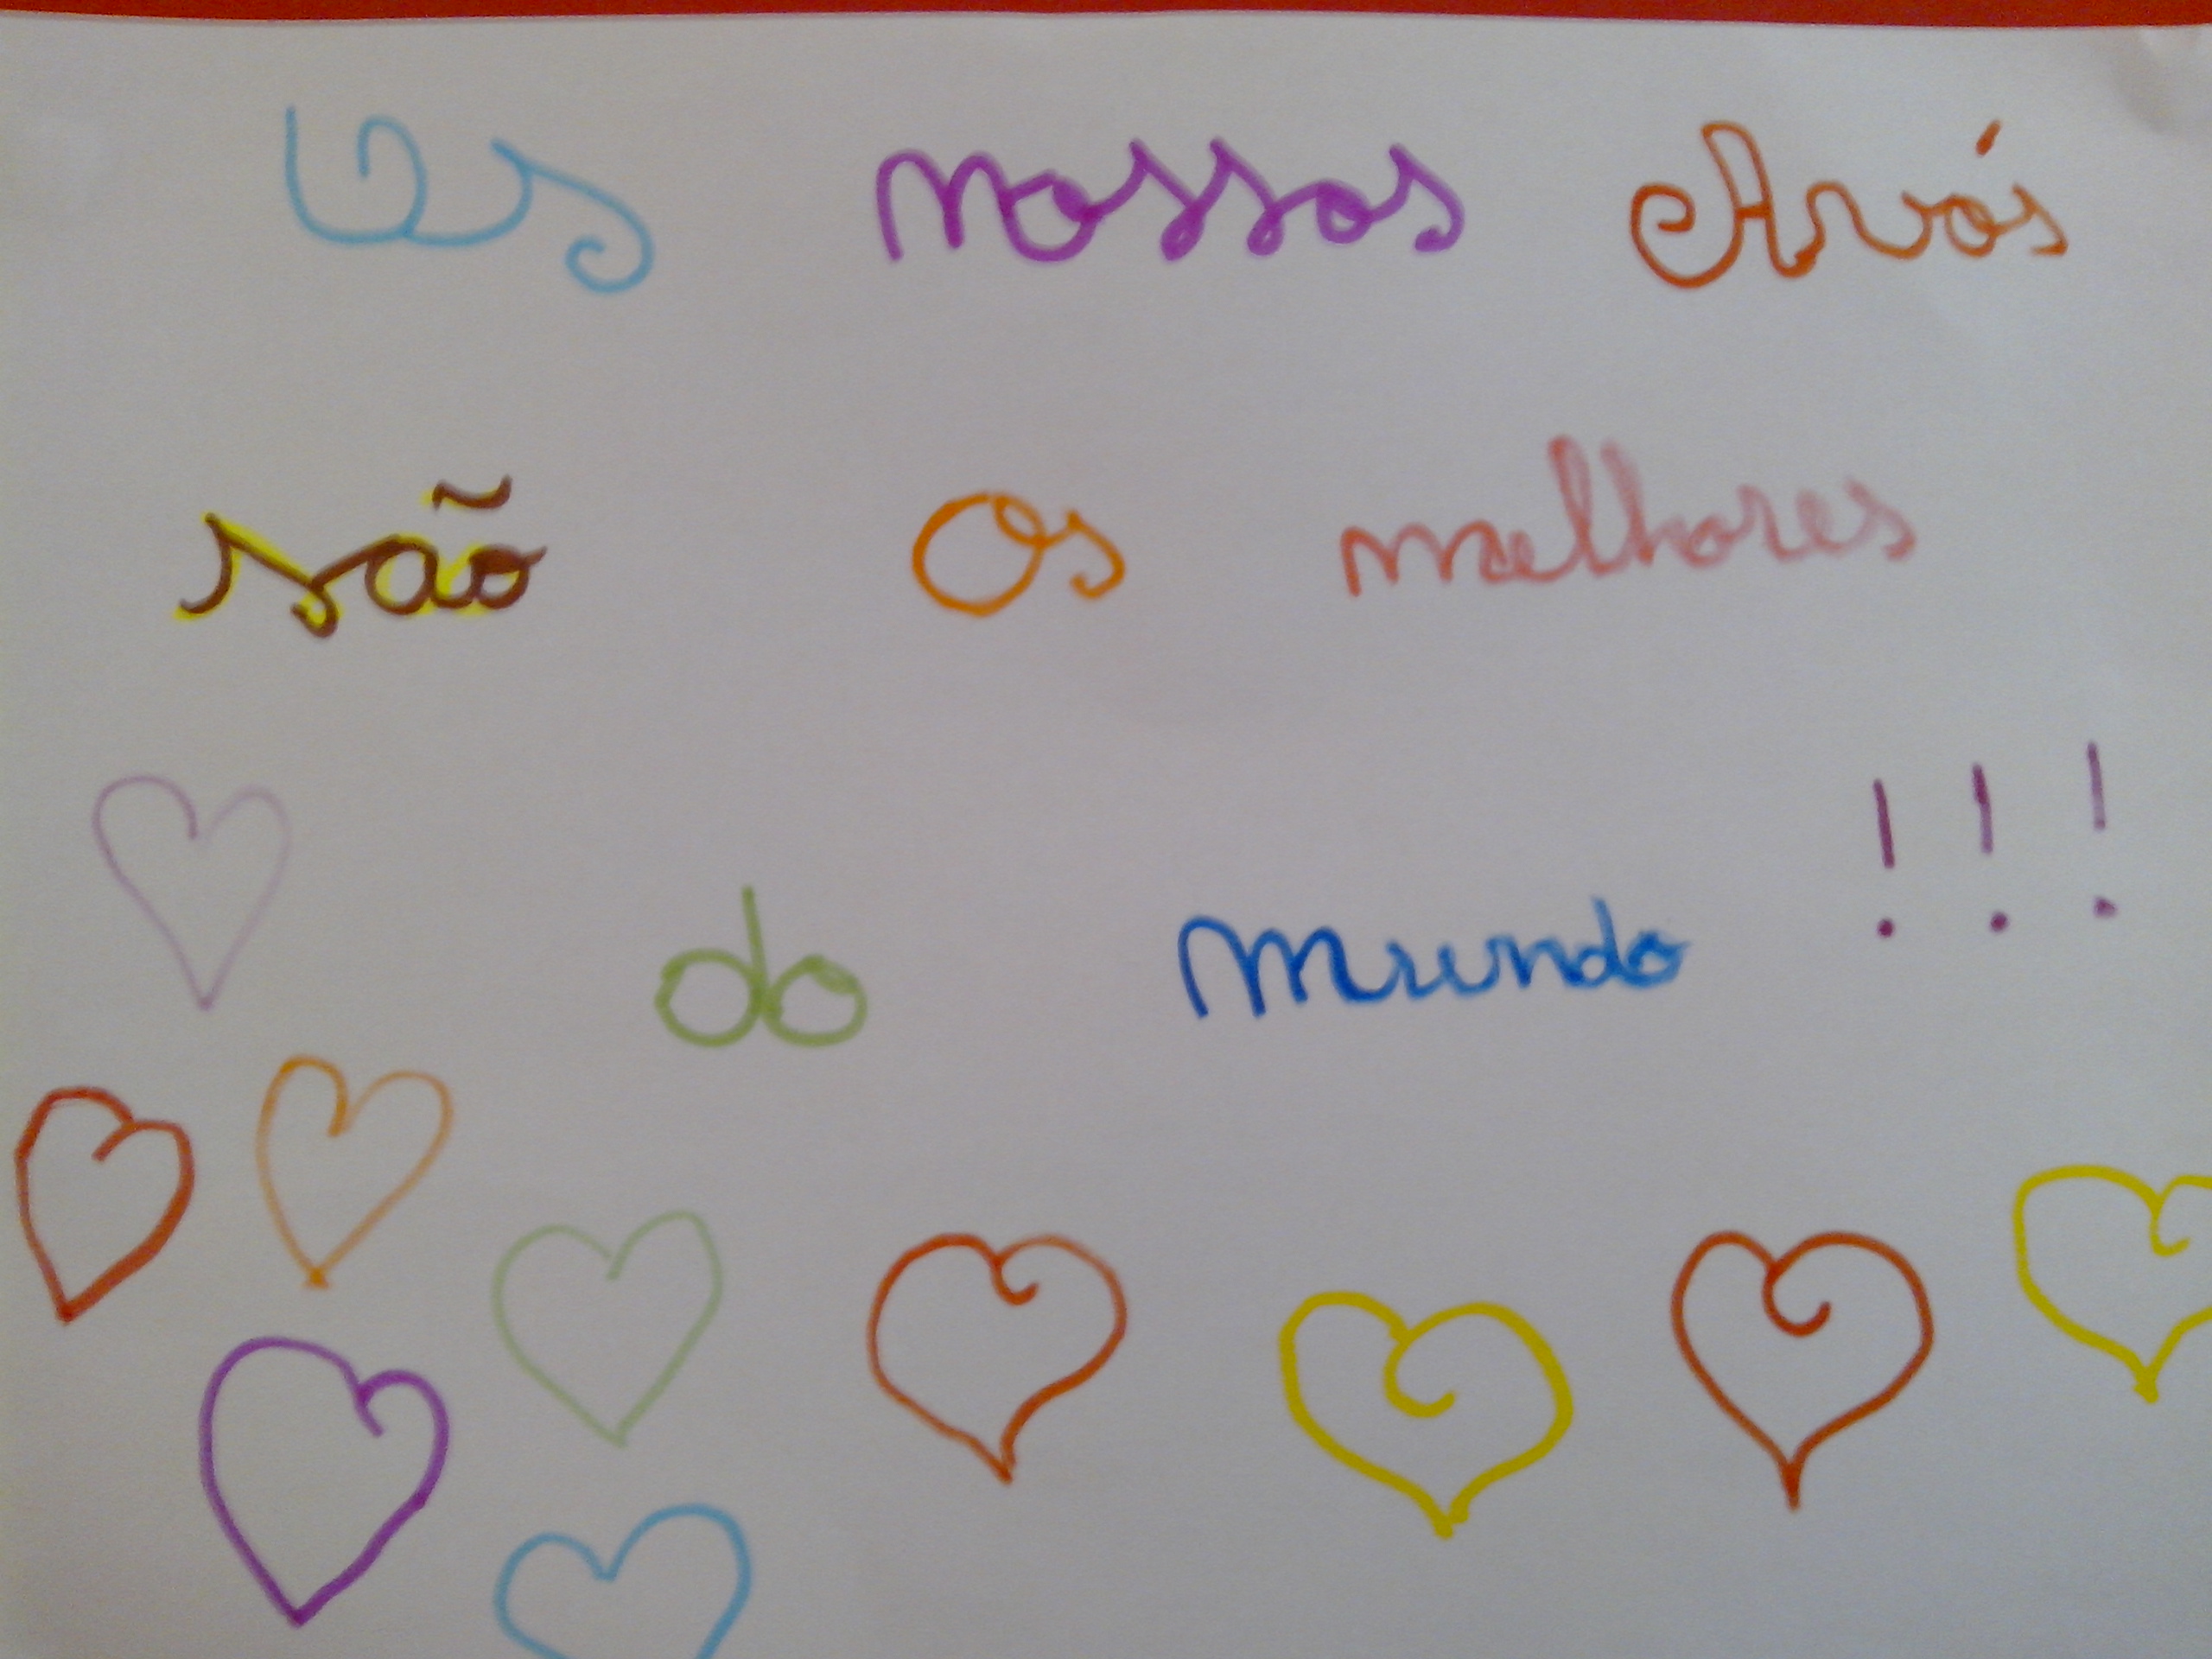 Os nossos Avós
são os melhores
do mundo !!!